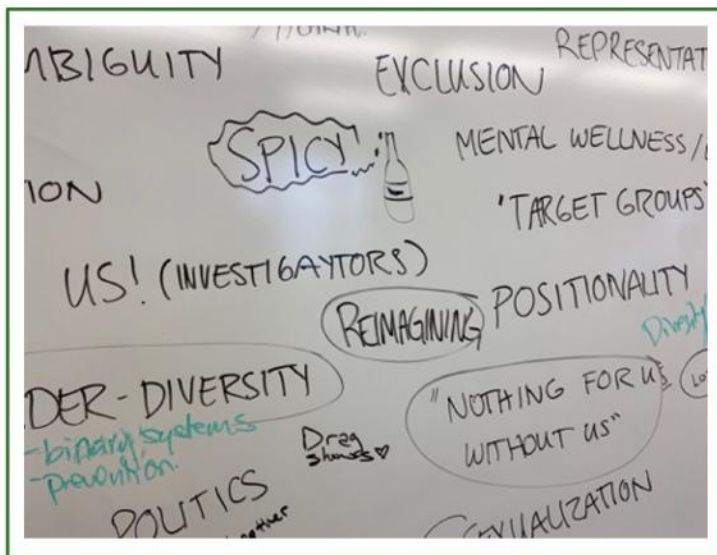 MBIGUITY
EXCLUSION
REPRESENTAT
SPICY!
MENTAL WELLNESS/
ION
'TARGET GROUPS'
US! (INVESTIGAYTORS)
REIMAGINING
POSITIONALITY
DER-DIVERSITY
-binary systems
-prevention.
Drag
shows♡
"NOTHING FOR US
WITHOUT US"
LO
POLITICS
EXUALIZATION